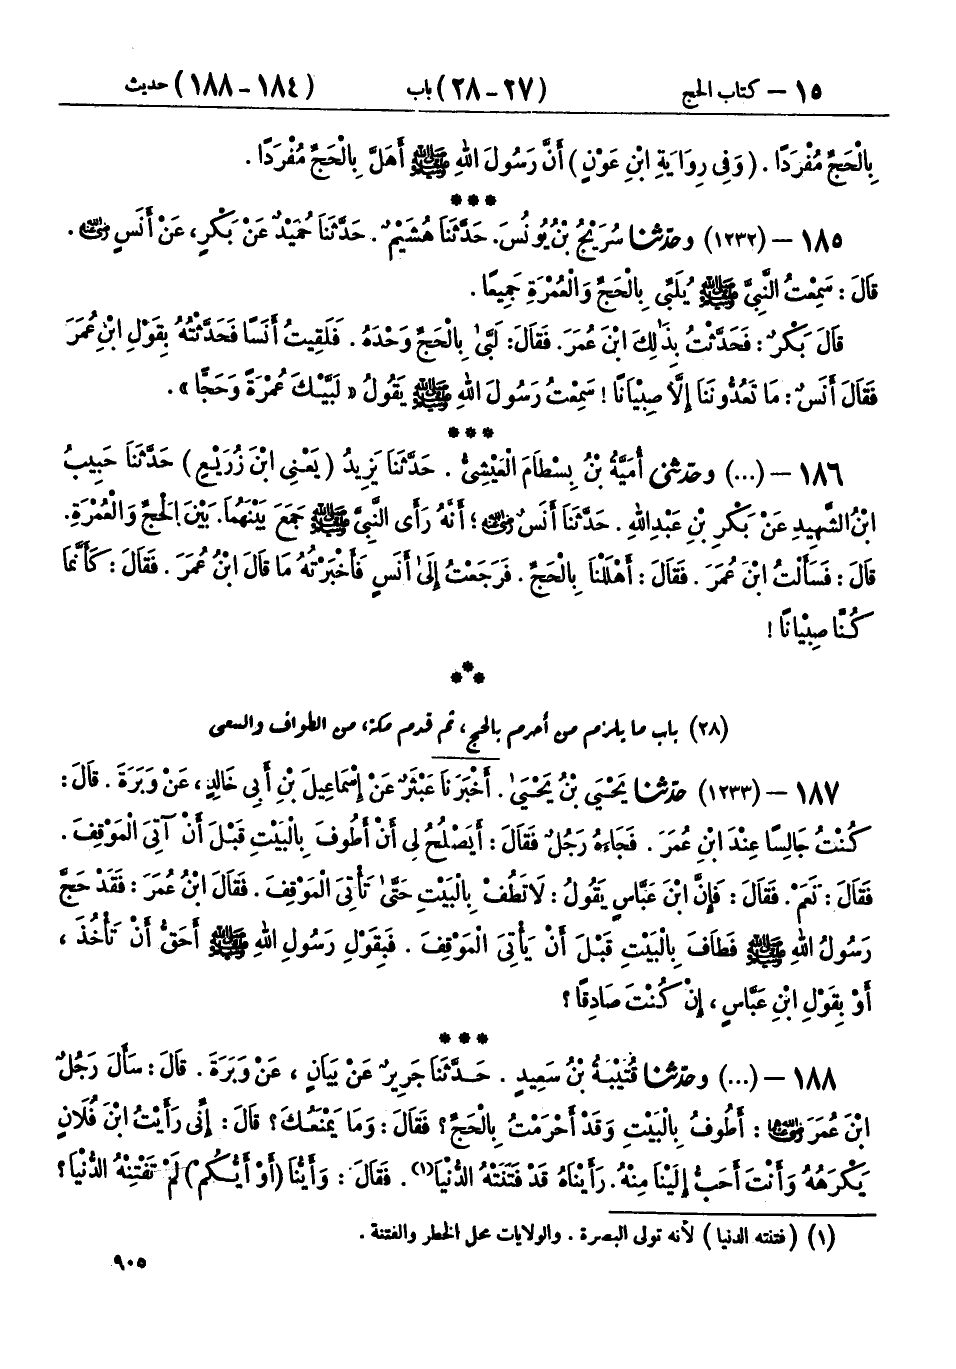 ١٥ – كتاب الحج (٢٧-٢٨) باب (١٨٤-١٨٨) حديث
بِالْحَجِّ مُفْرَدًا . (وَفِي رِوَايَةِ ابْنِ عَوْنٍ) أَنَّ رَسُولَ اللهِ ﷺ أَهَلَّ بِالْحَجِّ مُفْرَدًا .
***
١٨٥ – (١٢٣٢) وحَدَّثَنَا سُرَيْجُ بْنُ يُونُسَ. حَدَّثَنَا هُشَيْمٌ. حَدَّثَنَا حُمَيْدٌ عَنْ بَكْرٍ، عَنْ أَنَسٍ رضي الله عنه .
قَالَ : سَمِعْتُ النَّبِيَّ ﷺ يُلَبِّي بِالْحَجِّ وَالْعُمْرَةِ جَمِيعًا .
قَالَ بَكْرٌ : فَحَدَّثْتُ بِذَٰلِكَ ابْنَ عُمَرَ. فَقَالَ: لَبَّىٰ بِالْحَجِّ وَحْدَهُ . فَلَقِيتُ أَنَسًا فَحَدَّثْتُهُ بِقَوْلِ ابْنِ عُمَرَ
فَقَالَ أَنَسٌ : مَا تَعُدُّونَنَا إِلَّا صِبْيَانًا ! سَمِعْتُ رَسُولَ اللهِ ﷺ يَقُولُ « لَبَّيْكَ عُمْرَةً وَحَجًّا » .
***
١٨٦ – (...) وحَدَّثَنِي أُمَيَّةُ بْنُ بِسْطَامَ الْعَيْشِيُّ . حَدَّثَنَا يَزِيدُ (يَعْنِي ابْنَ زُرَيْعٍ) حَدَّثَنَا حَبِيبُ
ابْنُ الشَّهِيدِ عَنْ بَكْرِ بْنِ عَبْدِ اللهِ . حَدَّثَنَا أَنَسٌ رضي الله عنه ؛ أَنَّهُ رَأَى النَّبِيَّ ﷺ جَمَعَ بَيْنَهُمَا. بَيْنَ الْحَجِّ وَالْعُمْرَةِ.
قَالَ : فَسَأَلْتُ ابْنَ عُمَرَ . فَقَالَ : أَهْلَلْنَا بِالْحَجِّ . فَرَجَعْتُ إِلَىٰ أَنَسٍ فَأَخْبَرْتُهُ مَا قَالَ ابْنُ عُمَرَ . فَقَالَ : كَأَنَّمَا
كُنَّا صِبْيَانًا !
***
(٢٨) باب ما يلزم من أحرم بالحج ، ثم قدم مكة، من الطواف والسعي
١٨٧ – (١٢٣٣) حَدَّثَنَا يَحْيَىٰ بْنُ يَحْيَىٰ . أَخْبَرَنَا عَبْثَرٌ عَنْ إِسْمَاعِيلَ بْنِ أَبِي خَالِدٍ ، عَنْ وَبَرَةَ . قَالَ :
كُنْتُ جَالِسًا عِنْدَ ابْنِ عُمَرَ . فَجَاءَهُ رَجُلٌ فَقَالَ : أَيَصْلُحُ لِي أَنْ أَطُوفَ بِالْبَيْتِ قَبْلَ أَنْ آتِيَ الْمَوْقِفَ .
فَقَالَ : نَعَمْ . فَقَالَ : فَإِنَّ ابْنَ عَبَّاسٍ يَقُولُ : لَا تَطُفْ بِالْبَيْتِ حَتَّىٰ تَأْتِيَ الْمَوْقِفَ . فَقَالَ ابْنُ عُمَرَ : فَقَدْ حَجَّ
رَسُولُ اللهِ ﷺ فَطَافَ بِالْبَيْتِ قَبْلَ أَنْ يَأْتِيَ الْمَوْقِفَ . فَبِقَوْلِ رَسُولِ اللهِ ﷺ أَحَقُّ أَنْ تَأْخُذَ ،
أَوْ بِقَوْلِ ابْنِ عَبَّاسٍ ، إِنْ كُنْتَ صَادِقًا ؟
***
١٨٨ – (...) وحَدَّثَنَا قُتَيْبَةُ بْنُ سَعِيدٍ . حَدَّثَنَا جَرِيرٌ عَنْ بَيَانٍ ، عَنْ وَبَرَةَ . قَالَ : سَأَلَ رَجُلٌ
ابْنَ عُمَرَ رضي الله عنهما : أَطُوفُ بِالْبَيْتِ وَقَدْ أَحْرَمْتُ بِالْحَجِّ ؟ فَقَالَ : وَمَا يَمْنَعُكَ ؟ قَالَ : إِنِّي رَأَيْتُ ابْنَ فُلَانٍ
يَكْرَهُهُ وَأَنْتَ أَحَبُّ إِلَيْنَا مِنْهُ. رَأَيْنَاهُ قَدْ فَتَنَتْهُ الدُّنْيَا(١) . فَقَالَ : وَأَيُّنَا (أَوْ أَيُّكُمْ) لَمْ تَفْتِنْهُ الدُّنْيَا ؟
(١) (فتنته الدنيا) لأنه تولى البصرة . والولايات محل الخطر والفتنة .
٩٠٥